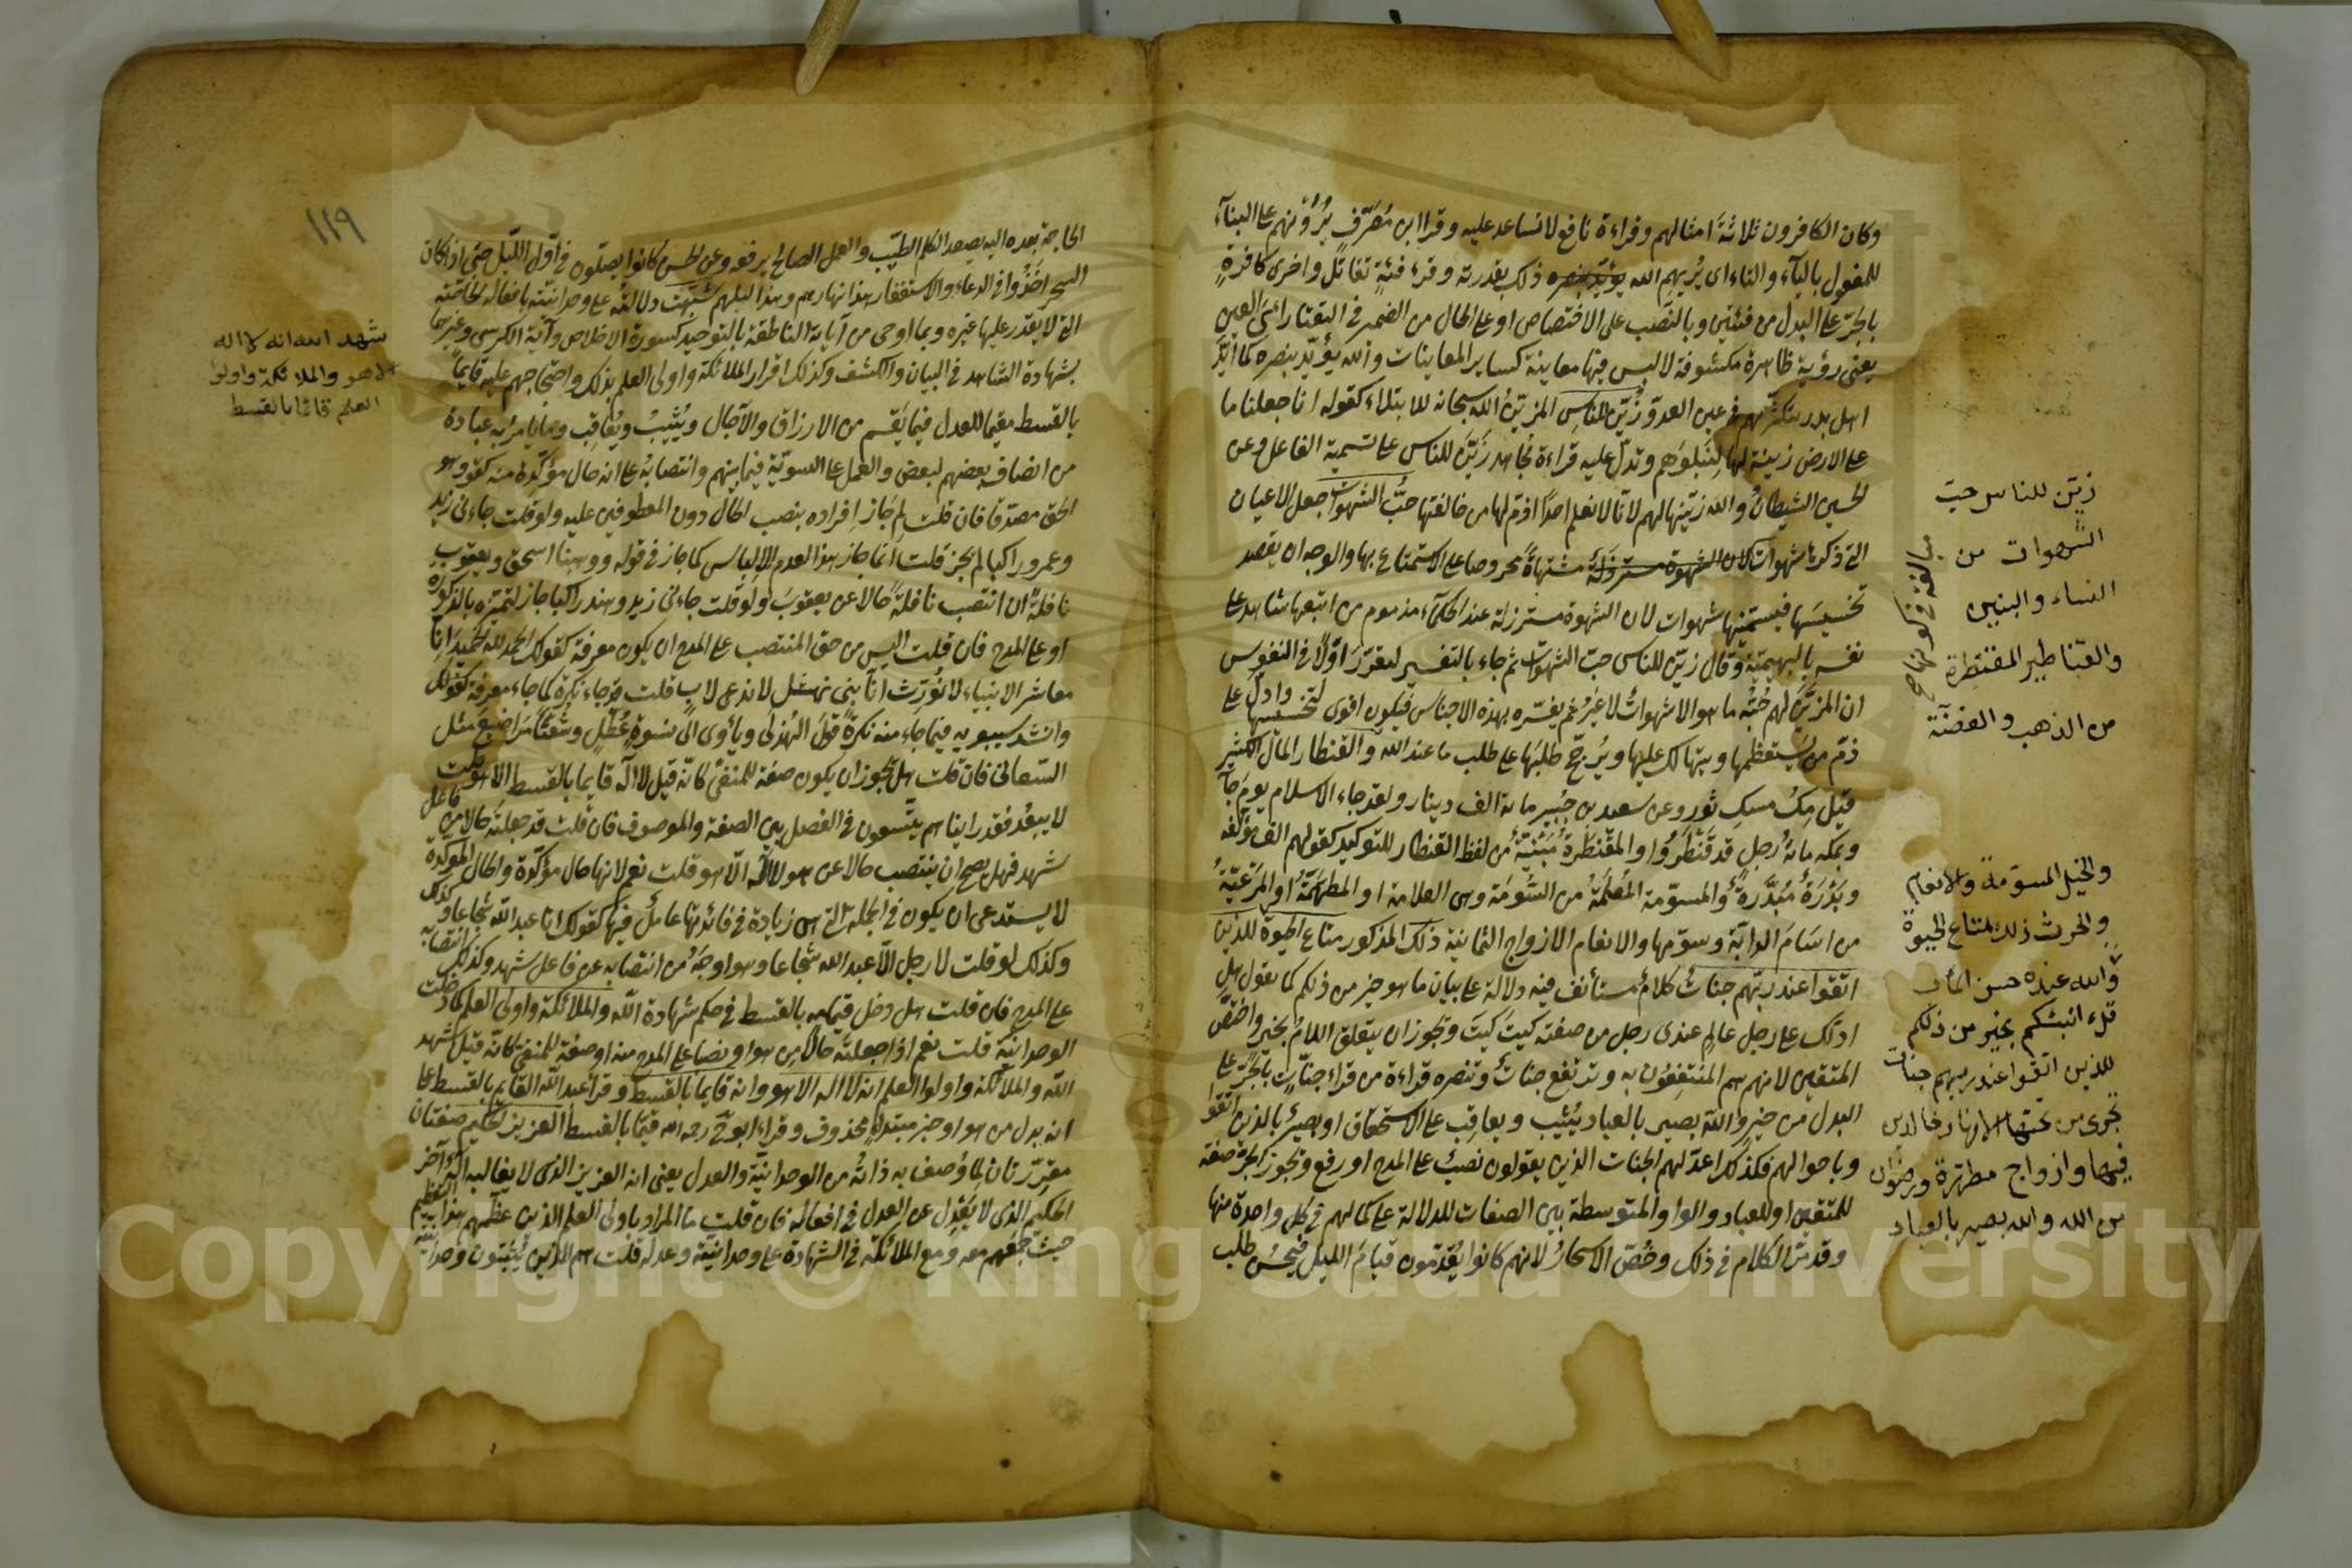 وكان الكافرون ثلاثة امثالهم وقراءة نافع لا تساعد عليه وقرا ابن مصرف يُرَوْنهم على البناء
للمفعول بالياء والتاء اى يُريهم الله ذلك بقدرته وقرئ فئةٍ تقاتل واخرى كافرةٍ
بالجرّ على البدل من فئتين وبالنصب على الاختصاص او على الحال من الضمير في التقتا رأى العين
يعنى رؤية ظاهرة مكشوفة لا لبس فيها معاينة كساير المعاينات والله يؤيّد بنصره كما ايّد
اهل بدر بتكثيرهم في عين العدوّ زُيّن للناس المزيّن الله سبحانه للابتلاء كقوله انا جعلنا ما
على الارض زينة لها لنبلوهم وتدلّ عليه قراءة مجاهد زَيَّنَ للناس على تسمية الفاعل وعن
الحسن الشيطانُ والله زيّنها لهم لانّا لا نعلم احدًا اذمّ لها من خالقها حبُّ الشهوات جعل الاعيان
التى ذكرها شهوات مشتهاةً محروصا على الاستمتاع بها والوجه ان يقصد
تخسيسها فيسمّيها شهوات لان الشهوة مسترذلة عند الحكماء مذموم من اتبعها شاهد على
نفسه بالبهيميّة وقال زيّن للناس حبّ الشهوات ثم جاء بالتفسير ليقرّر اوّلًا في النفوس
ان المزيَّن لهم حُبُّه ما هو الا شهواتٌ لا غيرُ ثم يفسّره بهذه الاجناس فيكون اقوى لتخسيسها وادلّ على
ذمّ من يستعظمها ويتهالك عليها ويُرجّح طلبَها على طلب ما عند الله والقنطار المال الكثير
قيل مِلْ مسكِ ثور وعن سعيد بن جُبير ماية الف دينار ولقد جاء الاسلام يوم جاء
وبمكة ماية رجل قد قَنْطَرُوا والمقنطرة مبنيّة من لفظ القنطار للتوكيد كقولهم الف مؤلّفة
وبَدْرَة مُبَدَّرة والمسوّمة المُعلَمة من السُّومة وهى العلامة او المطهّمة او المَرْعيّة
من اسامَ الدابّة وسوّمها والانعام الازواج الثمانية ذلك المذكور متاع الحيوة للذين
اتقوا عند ربّهم جنات كلامٌ مستأنف فيه دلالة على بيان ما هو خير من ذلكم كما يقول هل
ادلّك على رجل عالم عندى رجل من صفته كيتَ كيتَ وتجوز ان يتعلق اللامُ بخير واختصّ
المتقين لانهم هم المنتفعون به وترتفع جناتٌ وتنصره قراءة من قراء جنّاتٍ بالجرّ على
البدل من خير والله بصير بالعباد يُثيب ويعاقب على الاستحقاق او بصيرٌ بالذين اتقوا
وباحوالهم فكذلك اعدّ لهم الجنات الذين يقولون نصبٌ على المدح او رفع وتجوز الجرّ صفة
للمتقين او للعباد والواو المتوسطة بين الصفات للدلالة على كمالهم في كل واحدة منها
وقد مرّ الكلام في ذلك وخُصّ الاسحارُ لانهم كانوا يُقدّمون قيامَ الليل فيحسُن طلب
زيّن للناس حبّ
الشهوات من
النساء والبنين
والقناطير المقنطرة
من الذهب والفضّة
والخيل المسوّمة والانعام
والحرث ذلك متاع الحيوة
والله عنده حسن المآب
قل ءانبئكم بخير من ذلكم
للذين اتقوا عند ربهم جنات
تجرى من تحتها الانهار خالدين
فيها وازواج مطهّرة ورضوان
من الله والله بصير بالعباد
١١٩
الحاجة بعده اليه يصعد الكلم الطيّب والعمل الصالح يرفعه وعن الحسن كانوا يصلّون في اوّل الليل حتى اذا كان
السحر اخذُوا في الدعاء والاستغفار هذا نهارهم وهذا ليلهم شُبّهت دلالته على وحدانيّته بافعاله الخاصّة
التى لا يقدر عليها غيره وبما اوحى من آياته الناطقة بالتوحيد كسورة الاخلاص وآية الكرسى وغيرهما
بشهادة الشاهد في البيان والكشف وكذلك اقرار الملائكة واولى العلم بذلك واحتجاجهم عليه قايمًا
بالقسط مقيما للعدل فيما يَقسم من الارزاق والآجال ويُثيبُ ويُعاقِب وما يامر به عبادة
من انصاف بعضهم لبعض والعمل على السويّة فيما بينهم وانتصابُه على انه حال مؤكّدة منه كقوله وهو
الحق مصدّقا فان قلت لِمَ جاز افراده بنصب الحال دون المعطوفين عليه ولو قلت جاءنى زيد
وعمرو راكبا لم يجز قلت انّما جاز هذا لعدم الالباس كما جاز في قوله ووهبنا اسحق ويعقوب
نافلةً ان انتصب نافلةً حالا عن يعقوبَ ولو قلت جاءنى زيد وهند راكبا جاز لتميّزه بالذكورة
او على المدح فان قلت اليس من حق المنتصب على المدح ان يكون معرفة كقولك الحمد لله الحميدَ انّا
معاشر الانبياء لا نُورَث انّا بنى نهشل لا ندعى لاب قلت قد جاء نكرة كما جاء معرفة كقولك
وانشد سيبويه فيما جاء منه نكرةً قولَ الهُذلى وياوى الى نسوةٍ عُطَّلٍ وشُعثًا مَراضيعَ مثل
السّعالى فان قلت هل تجوز ان يكون صفة للمنفى كانّه قيل لا اله قايما بالقسط الا هو قلت
لا يبعُد فقد راينا هم يتّسعون في الفصل بين الصفة والموصوف فان قلت قد جعلتَه حالا من فاعل
شهد فهل يصحّ ان ينتصب حالا عن هو لا اله الّا هو قلت نعم لانها حال مؤكّدة والحال المؤكّدة
لا يستدعى ان يكون في الجملة التى هى زيادة في فائدتها عاملٌ فيها كقولك انا عبد الله شجاعا وكذلك
وكذلك لو قلت لا رجل الّا عبد الله شجاعا وهو اوجَهُ من انتصابه عن فاعل شهد وكذلك انتصابه
على المدح فان قلت هل دخل قيامه بالقسط في حكم شهادة الله والملائكة واولى العلم كما دخلت
الوحدانيّة قلت نعم اذا جعلتَه حالا من هو او نصبا على المدح منه او صفة للمنفى كانّه قيل شهد
الله والملائكة واولوا العلم انه لا اله الا هو وانه قايما بالقسط وقرا عبد الله القايم بالقسط على
انه بدل من هو او خبر مبتداء محذوف وقراء ابو ح رحمه الله قيّما بالقسط العزيز الحكيم صفتان
مقرّرتان لما وُصف به ذاتُه من الوحدانيّة والعدل يعنى انه العزيز الذى لا يغالبه اله آخر
الحكيم الذى لا يَعْدِل عن العدل في افعاله فان قلت ما المراد باولى العلم الذين عظّمهم هذا التعظيم
حيث جمَعهم معه ومع الملائكة في الشهادة على وحدانيّته وعدله قلت هم الذين يُثبتون وحدانيّته
شهد الله انه لا اله
الا هو والملائكة واولوا
العلم قائما بالقسط
Copyright © King Saud University